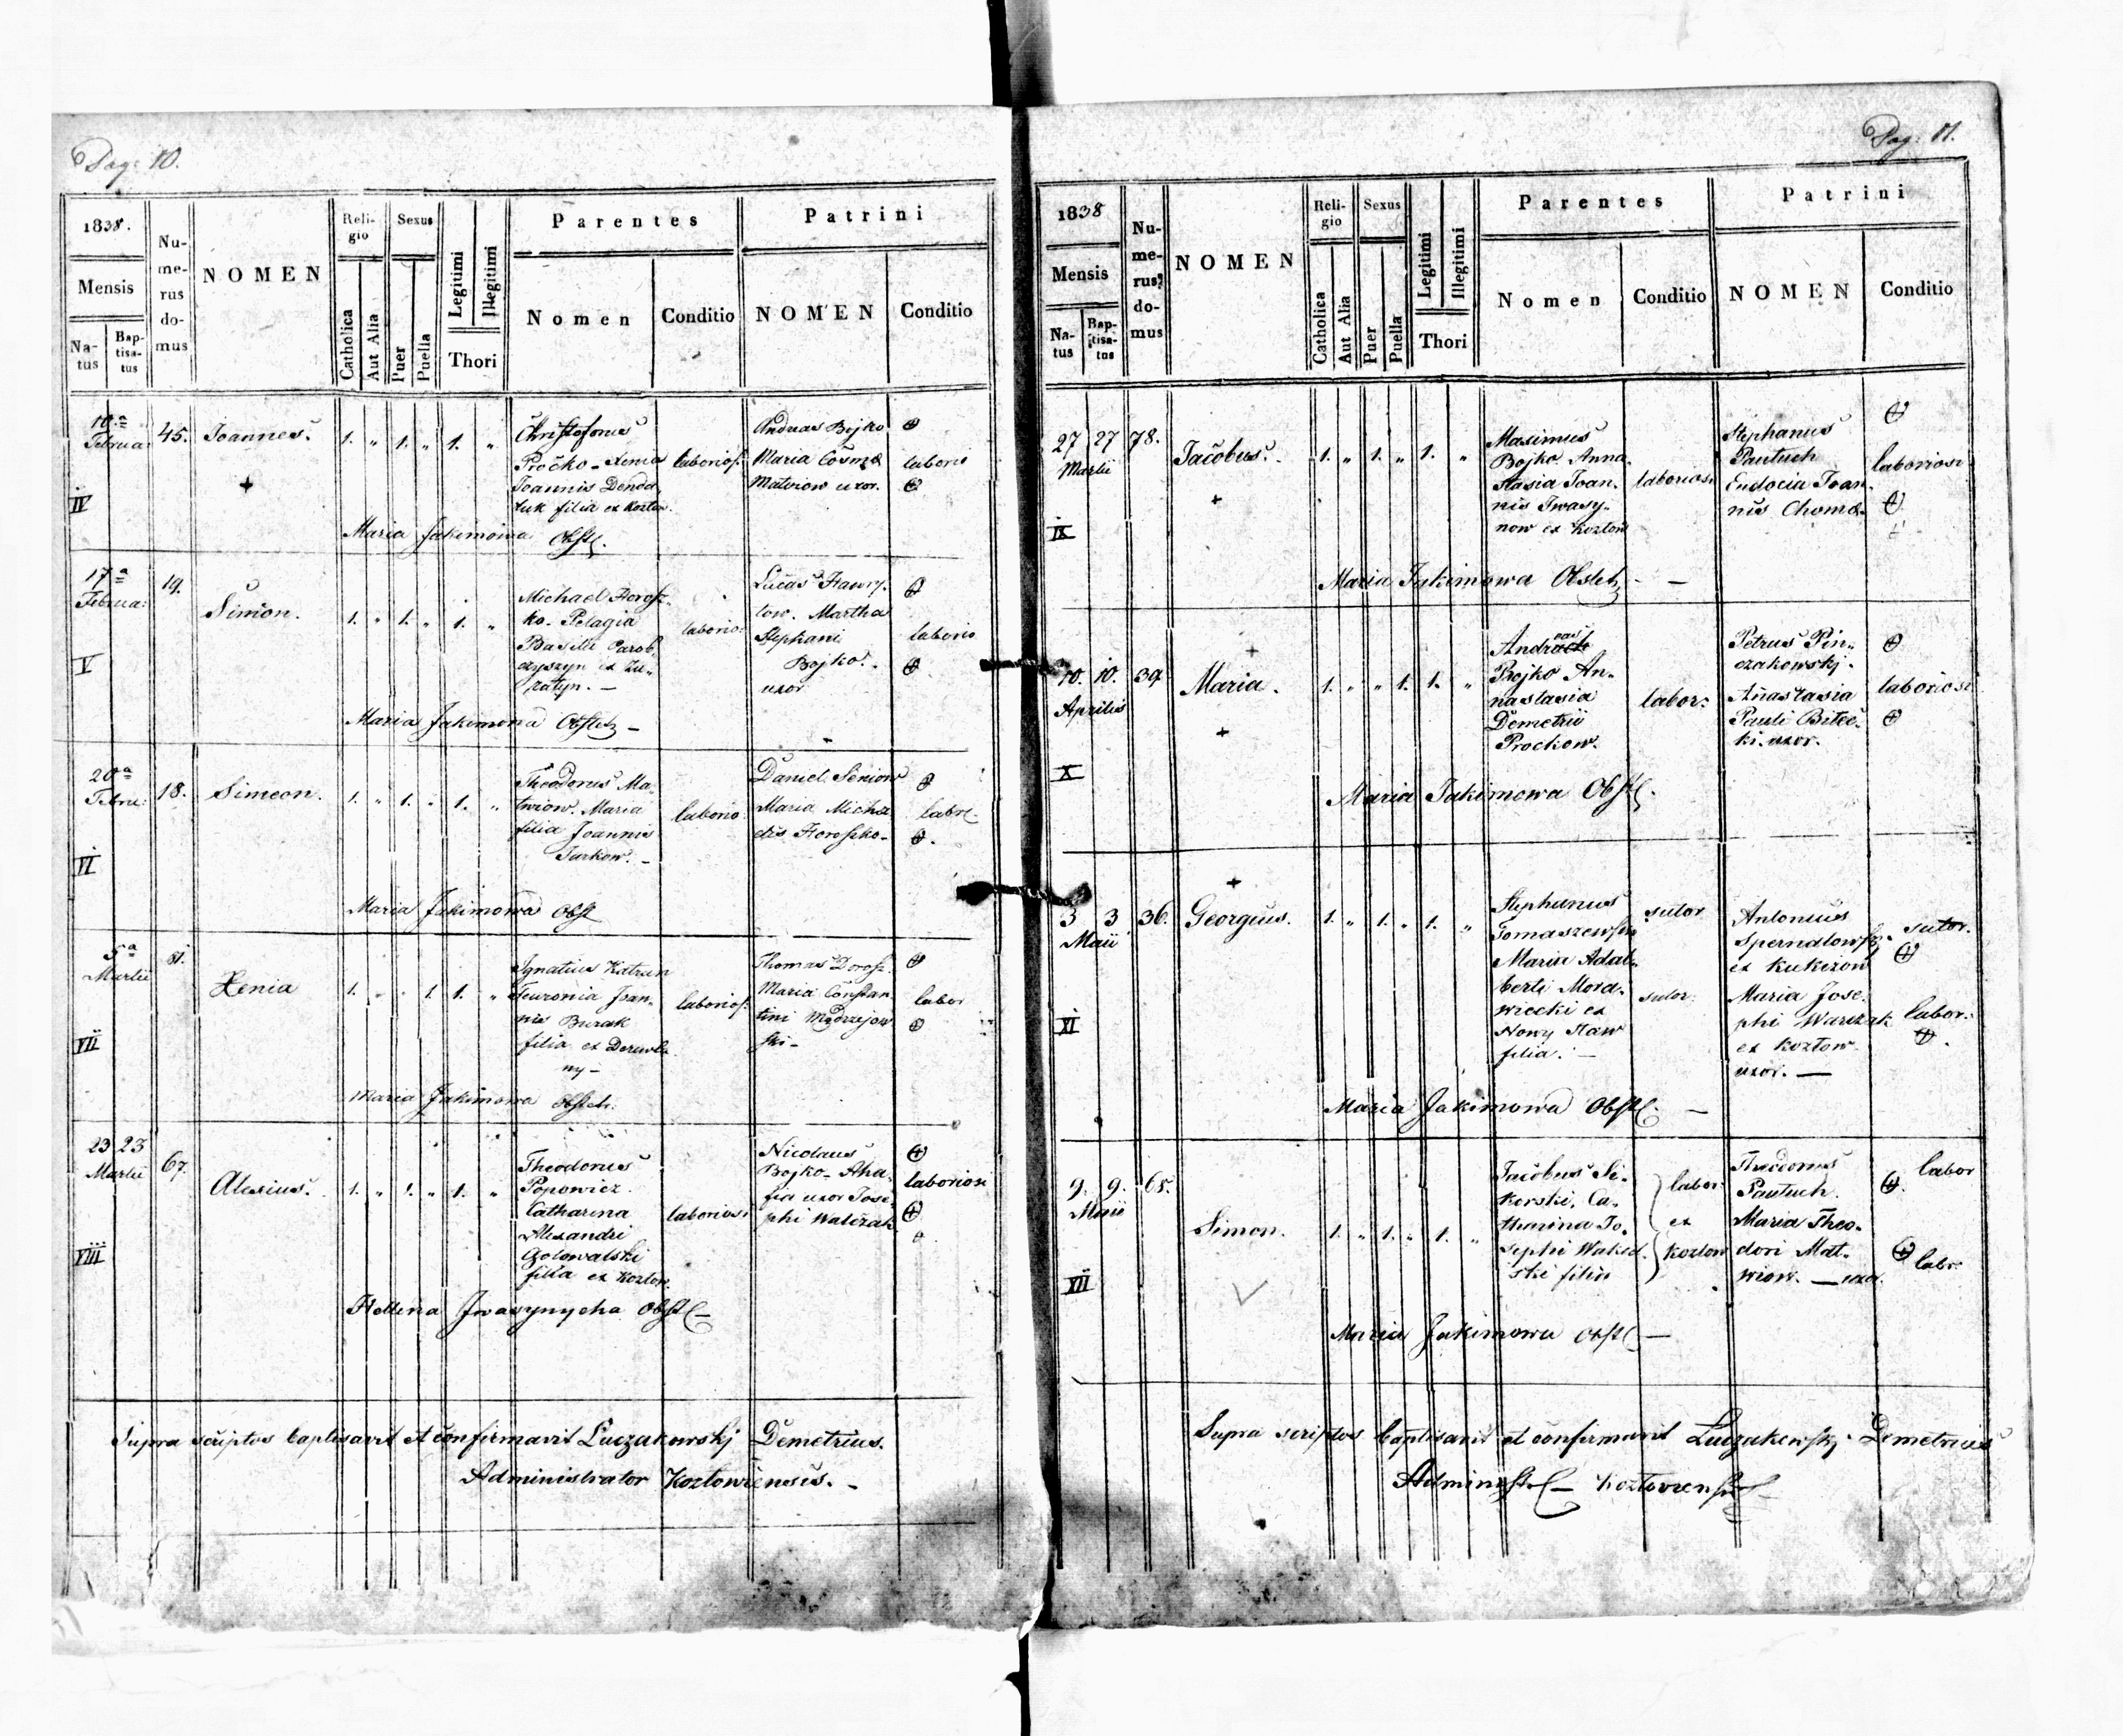 Pag: 10.
1838.
Mensis
Na-
tus
Bap-
tisa-
tus
Nu-
me-
rus
do-
mus
NOMEN
Reli-
gio
Catholica
Aut Alia
Sexus
Puer
Puella
Legitimi
Illegitimi
Thori
Parentes
Nomen
Conditio
Patrini
NOMEN
Conditio
10a
Februa:
IV
45.
Joannes.
1. „ 1. „ 1. „
Christoforus
Procko - Xenia
Joannis Denda
luk filia ex Kozlow.
laborios:
Andreas Bojko
Maria Cosmæ
Matwiow uxor.
laborio
Maria Jakimowa Obste.
17a
Februa:
V
19.
Simon.
1. „ 1. „ 1. „
Michael Horosz-
ko. Pelagia
Basilii Parob-
ex Zu-
ratyn. —
laborio:
Lucas Hawry-
low. Martha
Stephani
Bojko.
uxor
laborio
Maria Jakimowa Obstet —
20a
Febru:
VI
18.
Simeon.
1. „ 1. „ 1. „
Theodorus Ma-
twiow. Maria
filia Joannis
Jurkow. —
laborio:
Daniel Seniow
Maria Micha
elis Horoszko-
labor.
Maria Jakimowa Obst
5a
Martii
VII
81.
Xenia
1. „ „ 1. 1. „
Ignatius Katran
Feuronia Joan-
nis Burak
filia ex Derewla
ny —
laborios:
Thomas Dorosz
Maria Constan
tini Mędrzejow
ski —
labor
Maria Jakimowa Obsteh.
23 23
Martii
VIII
67.
Alexius.
1. „ 1. „ 1. „
Theodorus
Popowicz.
Catharina
Alexandri
Golowalski
filia ex Kozlow.
laboriosi
Nicolaus
Bojko - Aha-
fia uxor Jose-
phi Walczak
laboriosi
Hellena Iwasynycha Obste —
Supra scriptos baptisavit et confirmavit Luczakowskj Demetrius.
Administrator Kozlowiensis. -
Pag: 11.
1838
Mensis
Na-
tus
Bap-
tisa-
tus
Nu-
me-
rus
do-
mus
NOMEN
Reli-
gio
Catholica
Aut Alia
Sexus
Puer
Puella
Legitimi
Illegitimi
Thori
Parentes
Nomen
Conditio
Patrini
NOMEN
Conditio
27 27
Martii
IX
78.
Jacobus.
1. „ 1. „ 1. „
Maximus
Bojko. Anna-
stasia Joan-
nis Iwasy-
now ex Kozlow
laboriosi
Stephanus
Pautuch
Eudocia Joan-
nis Choma.
laboriosi
Maria Jakimowa Obsteh —
10. 10.
Aprilis
X
39
Maria.
1. „ „ 1. 1. „
Bojko An-
nastasia
Demetrii
Prockow.
labor:
Petrus Pin-
czakowskj.
Anastasia
Pauli Bilec-
ki. uxor.
laboriosi
Maria Jakimowa Obste.
3 3
Maii
XI
36.
Georgius.
1. „ 1. „ 1. „
Stephanus
Tomaszewski
Maria Adal-
berti Mora-
wiecki ex
Nowy Staw
filia. —
sutor
sutor:
Antonius
ex Kukizow
Maria Jose-
phi Warczak
ex Kozlow.
uxor. —
sutor.
labor:
Maria Jakimowa Obste. —
9. 9.
Maii
XII
65.
Simon.
1. „ 1. „ 1. „
Jacobus Si-
korski, Ca-
tharina Jo-
sephi
ski filia
labor.
ex
Kozlow
Theodorus
Pautuch.
Maria Theo-
dori Mat-
wiow. — uxor.
labor
labor.
Maria Jakimowa Obste —
Supra scriptos baptisavit et confirmavit Luczakowskj Demetrius